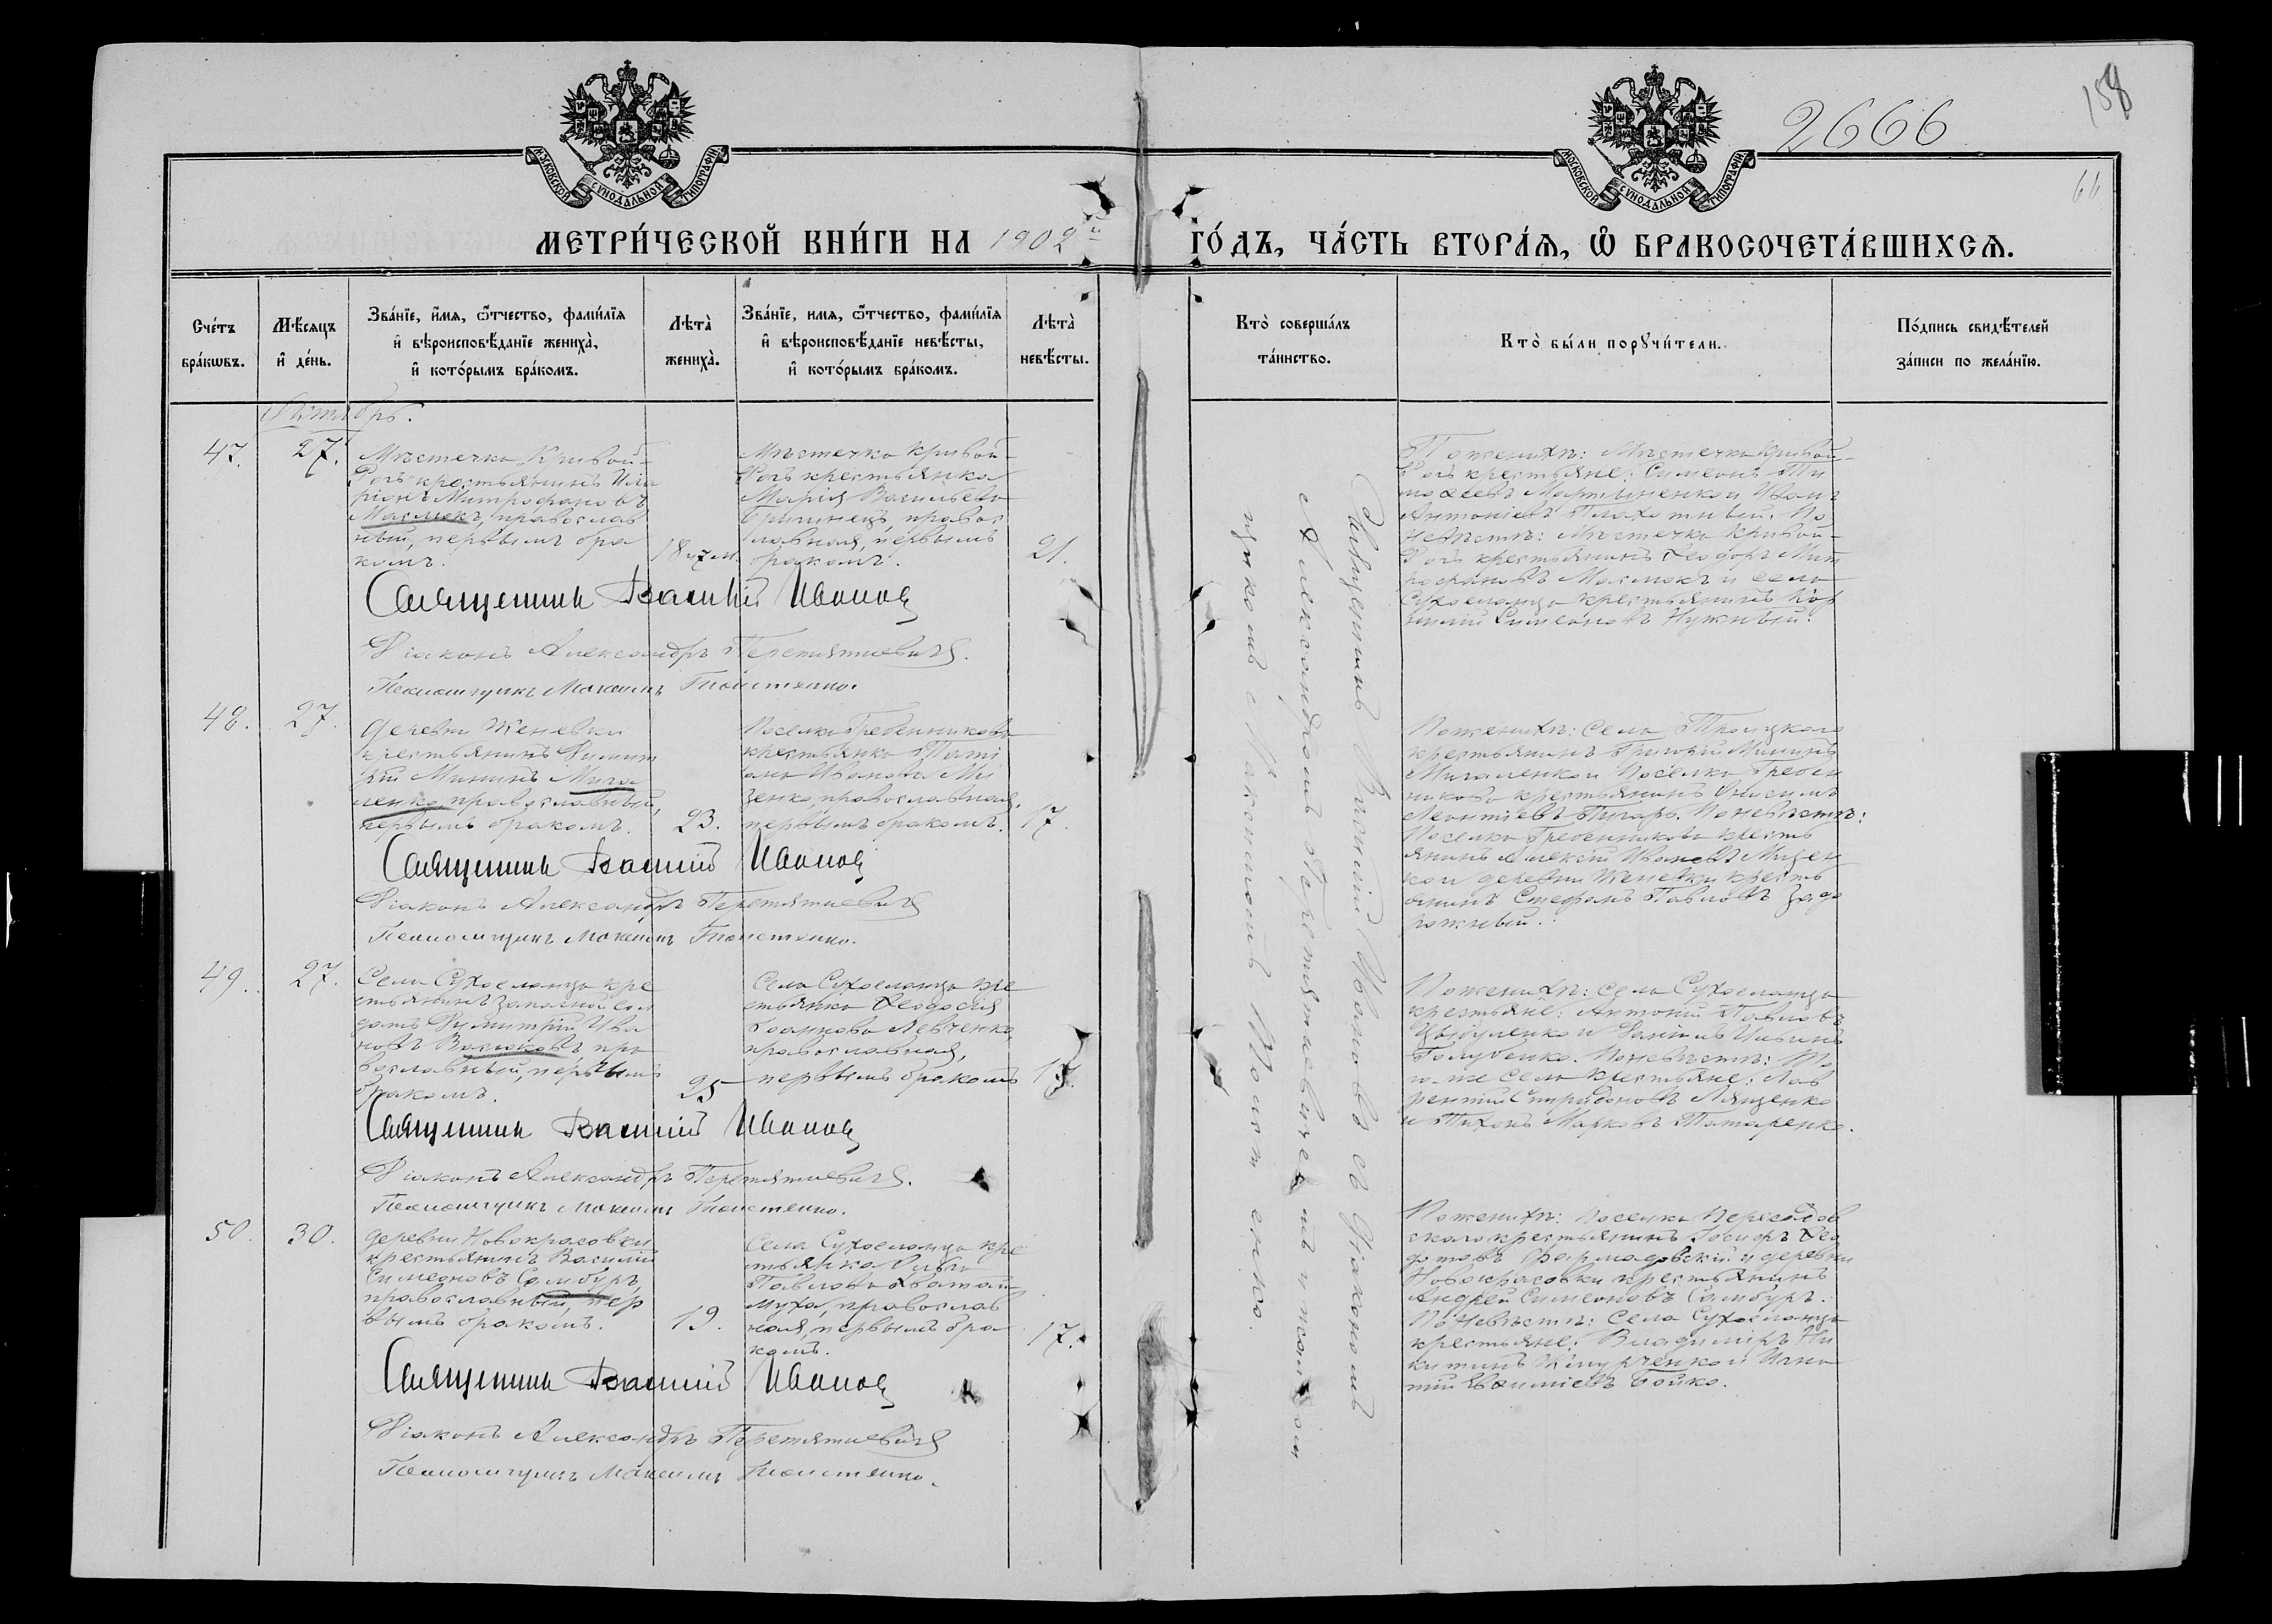 2666
158
МОСКОВСКОЙ СѴНОДАЛЬНОЙ ТИПОГРАФІИ
МОСКОВСКОЙ СѴНОДАЛЬНОЙ ТИПОГРАФІИ
МЕТРИ́ЧЕСКОЙ КНИ́ГИ НА 1902й ГО́ДЪ, ЧА́СТЬ ВТОРА́Ѧ, Ѽ БРАКОСОЧЕТА́ВШИХСѦ.
Сче́тъ бра́кѡвъ.
Мѣ́сяцъ и҆ де́нь.
Зва́нїе, и҆́мѧ, ѻ҆́тчество, фами́лїѧ
и҆ вѣроисповѣ́данїе жениха̀,
и҆ кото́рымъ бра́комъ.
Лѣта̀ жениха̀.
Зва́нїе, имѧ, ѻ҆́тчество, фами́лїѧ
и҆ вѣроисповѣ́данїе невѣ́сты,
и҆ кото́рымъ бра́комъ.
Лѣта̀ невѣ́сты.
Кто̀ соверша́лъ та́инство.
Кто̀ бы́ли порꙋчи́тели.
По́дпись свидѣ́телей за́писи по жела́нїю.
Октябрь.
47.
27.
Мѣстечка Кривой-
Рогъ крестьянинъ Ила
ріонъ Митрофановъ
Маслюкъ, православ
ный, первымъ бра
комъ.
18 и 7 м.
Мѣстечка Кривой-
Рогъ крестьянка
Марія Васильева
правос
лавная, первымъ
бракомъ.
21.
По женихѣ: Мѣстечка Кривой-
Рогъ крестьяне: Симеонъ Ти
моѳеевъ Мартыненко и Иванъ
Антоніевъ Плахотный. По
невѣстѣ: Мѣстечка Кривой-
Рогъ крестьянинъ Ѳеодоръ Мит
рофановъ Маслюкъ и села
Сухоеланца крестьянинъ Кор
нилій Симеоновъ Нужный.
Священникъ Василій Ивановъ
Діаконъ Александръ Перетяткевичъ.
Псаломщикъ Максимъ
48.
27.
Деревни Женевки
крестьянинъ Димит
рій Мининъ Мига
ленко, православный,
первымъ бракомъ.
23.
Поселка Гребенникова
крестьянка Тать
яна Иванова Ми
ценко, православная,
первымъ бракомъ.
17.
По женихѣ: села Троицкаго
крестьянинъ Григорій Мининъ
Мигаленко и поселка Гребен
никова крестьянинъ Онисимъ
Леонтіевъ По невѣстѣ:
Поселка Гребенникова кресть
янинъ Алексій Ивановъ Мицен
ко и деревни Женевки кресть
янинъ Стефанъ Павловъ Задо
рожный.
Священникъ Василій Ивановъ
Діаконъ Александръ Перетяткевичъ
Псаломщикъ Максимъ
49.
27.
Села Сухоеланца кре
стьянинъ запасной сол
датъ Димитрій Ива
новъ пра
вославный, первымъ
бракомъ.
25
Села Сухоеланца кре
стьянка Ѳеодосія
Іоаннова Левченко,
православная,
первымъ бракомъ
По женихѣ: села Сухоеланца
крестьяне: Антоній Павловъ
Цыбуленко и Даніилъ Ильинъ
Голубенко. По невѣстѣ: То
го-же села крестьяне: Лав
рентій Спиридоновъ Лященко
и Тихонъ Марковъ
Священникъ Василій Ивановъ
Діаконъ Александръ Перетяткевичъ.
Псаломщикъ Максимъ
50.
30.
Деревни Новокрасовки
крестьянинъ Василій
Симеоновъ Самбуръ,
православный, пер
вымъ бракомъ.
19.
Села Сухоеланца кре
стьянка
Павлова Хватай-
муха, православ
ная, первымъ бра
комъ.
17.
По женихѣ: поселка
скаго крестьянинъ Іосифъ Ѳео
дотовъ и деревни
Новокрасовки крестьянинъ
Андрей Симеоновъ Самбуръ.
По невѣстѣ: Села Сухоеланца
крестьяне: Владиміръ Ни
китинъ и Игна
тій Евѳиміевъ Бойко.
Священникъ Василій Ивановъ
Діаконъ Александръ Перетяткевичъ
Псаломщикъ Максимъ
Священникъ Василій Ивановъ съ діакономъ
Александромъ Перетяткевичемъ и псалом
щикомъ Максимомъ